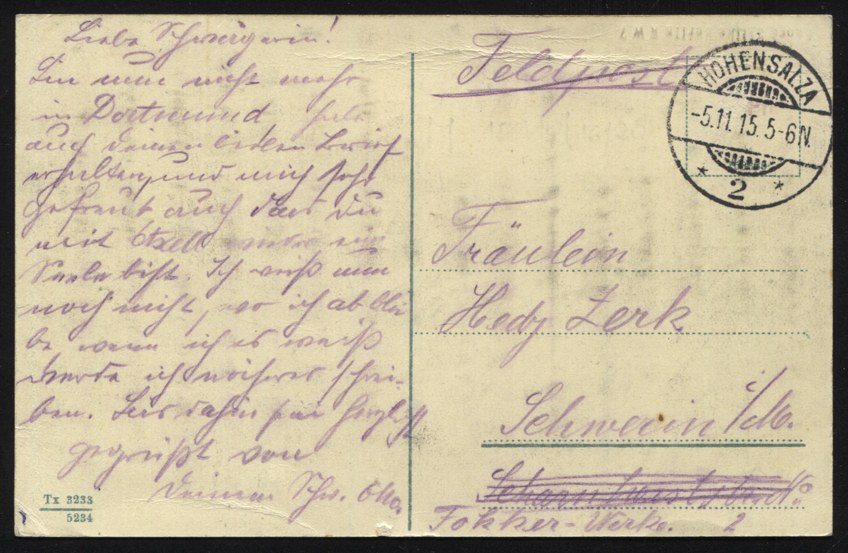 Liebe Schwägerin!
Bin nun nicht mehr
in Dortmund habe
auch deinen lieben Brief
erhalten, und mich sehr
gefreut auch das du
mit
Seele bist. Ich weiß nun
noch nicht, wo ich ab blei
be wenn ich es weiß
werde ich näheres schrei-
ben. Bis dahin sei herzl.
gegrüßt von
deinem Schw. Otto.
Tx 3233
5234
Feldpost
HOHENSALZA
-5.11.15.5-6N.
* 2 *
Fräulein
Hedy Zerk
Schwerin i/M.
Fokker-Werke. 2